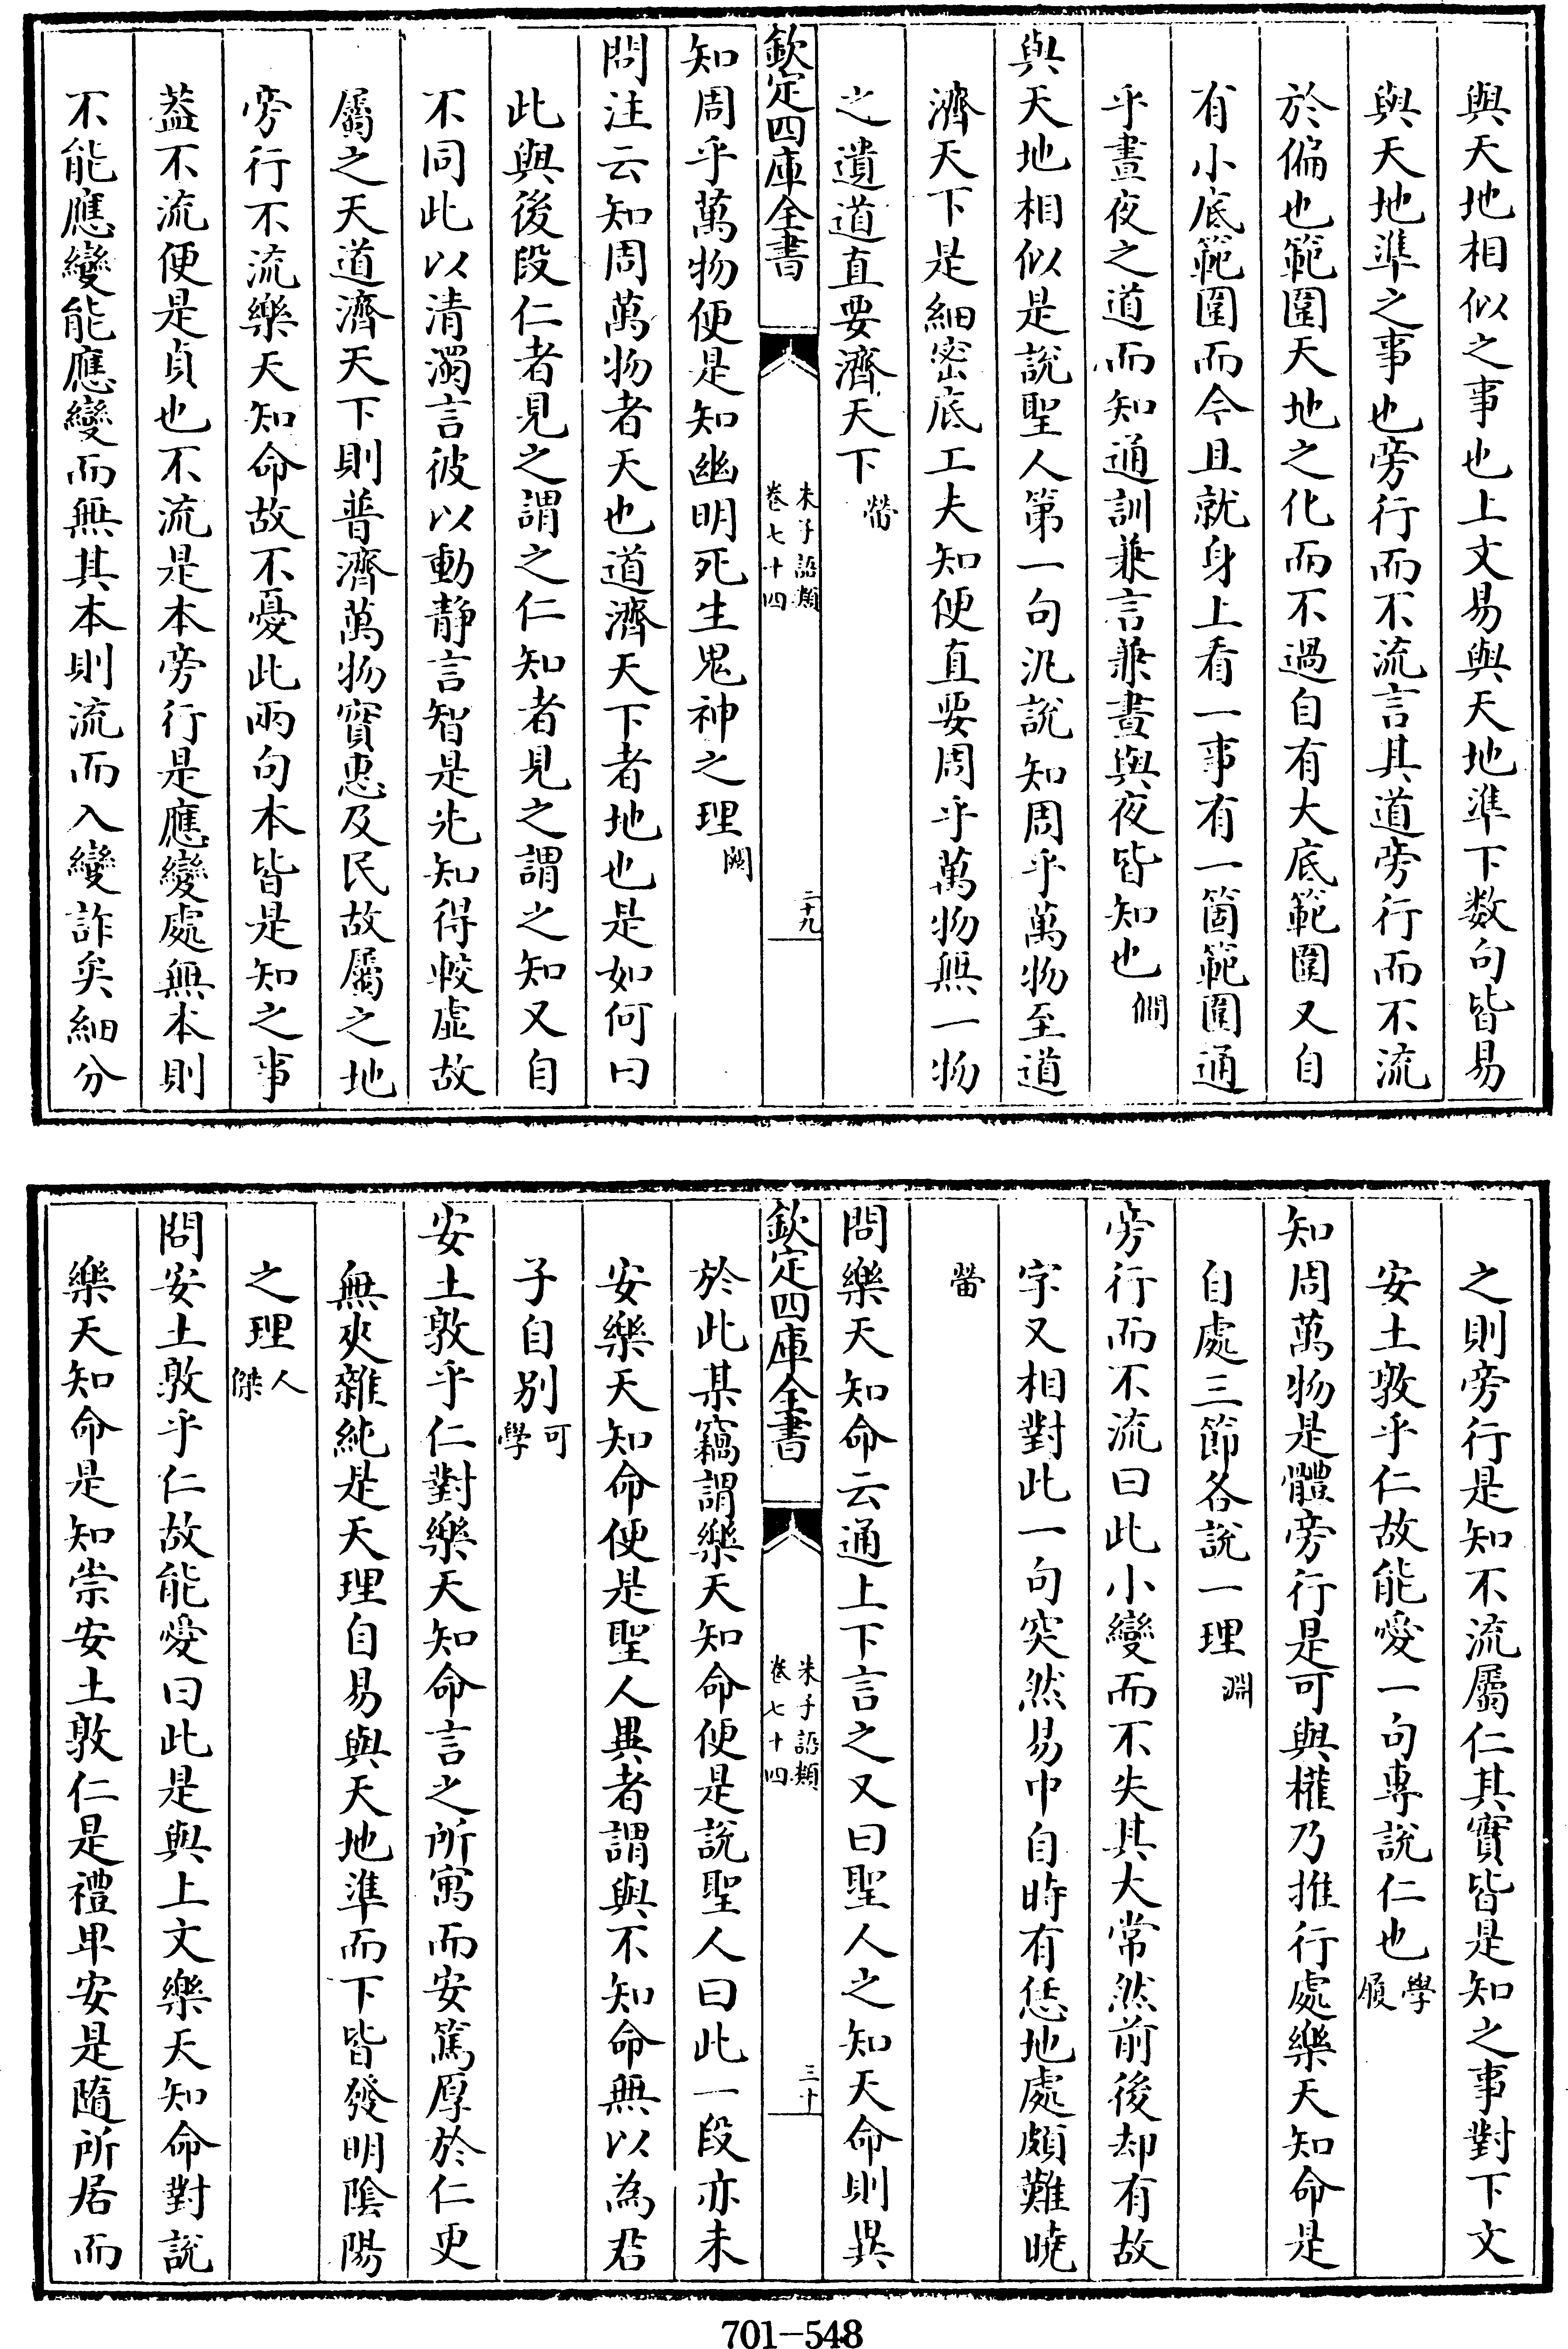 與天地相似之事也上文易與天地準下数句皆易
與天地準之事也旁行而不流言其道旁行而不流
於偏也範圍天地之化而不過自有大底範圍又自
有小底範圍而今且就身上看一事有一箇範圍通
乎晝夜之道而知通訓兼言兼晝與夜皆知也僩
與天地相似是說聖人第一句汎說知周乎萬物至道
濟天下是細密底工夫知便直要周乎萬物無一物
之遺道直要濟天下㽦
欽定四庫全書
朱子語類
卷七十四
二十九
知周乎萬物便是知幽明死生鬼神之理閎
問注云知周萬物者天也道濟天下者地也是如何曰
此與後段仁者見之謂之仁知者見之謂之知又自
不同此以清濁言彼以動靜言智是先知得較虛故
屬之天道濟天下則普濟萬物實惠及民故屬之地
旁行不流樂天知命故不憂此兩句本皆是知之事
葢不流便是貞也不流是本旁行是應變處無本則
不能應變能應變而無其本則流而入變詐矣細分
之則旁行是知不流屬仁其實皆是知之事對下文
安土敦乎仁故能愛一句專說仁也學履
知周萬物是體旁行是可與權乃推行處樂天知命是
自處三節各說一理淵
旁行而不流曰此小變而不失其大常然前後却有故
字又相對此一句突然易中自時有恁地處頗難曉
㽦
問樂天知命云通上下言之又曰聖人之知天命則異
欽定四庫全書
朱子語類
卷七十四
三十
於此某竊謂樂天知命便是說聖人曰此一段亦未
安樂天知命便是聖人異者謂與不知命無以為君
子自別可學
安土敦乎仁對樂天知命言之所寓而安篤厚於仁更
無夾雜純是天理自易與天地準而下皆發明陰陽
之理人傑
問安土敦乎仁故能愛曰此是與上文樂天知命對說
樂天知命是知崇安土敦仁是禮卑安是隨所居而
701-548